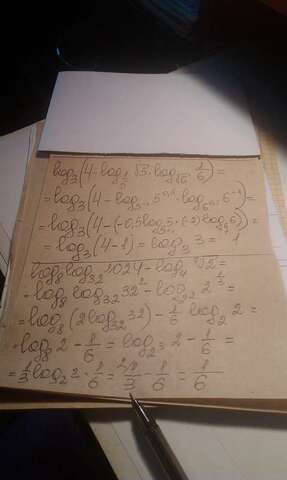 log₃(4-log₁/₅ √5·log√₆ 1/6)=
=log₃(4-log₅₋₁ 5^0,5·log₆0,5 6⁻¹)=
=log₃(4-(-0,5log₅5·(-2)log₆6)=
=log₃(4-1)=log₃3=1
log₈log₃₂1024-log₄ ³√2=
=log₈log₃₂32²-log₂2 2^1/3=
=log₈(2log₃₂32)-1/6 log₂2=
=log₈2-1/6=log₂3 2-1/6=
=1/3 log₂2-1/6=1/3-1/6=1/6